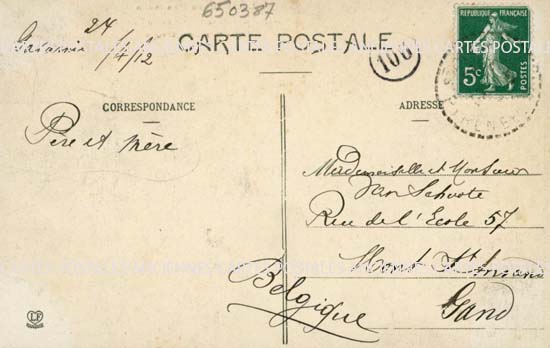 650387
24/4/12
CARTE POSTALE
106
REPUBLIQUE FRANÇAISE
5c
POSTES
CORRESPONDANCE
ADRESSE
Père et Mère
Mademoiselle et Monsieur
Van Schoote
Rue de l'Ecole 57
Mont St Amand
Gand
Belgique
LF